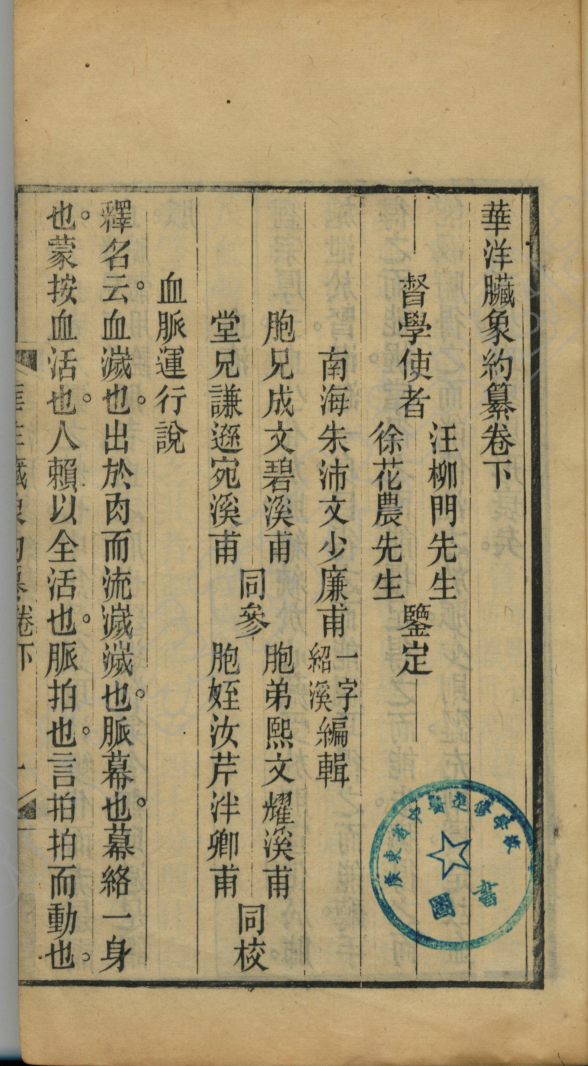 華洋臟象約纂卷下
督學使者 汪柳門先生 徐花農先生 鑒定
南海朱沛文少廉甫一字紹溪編輯
胞兄成文碧溪甫 堂兄謙遜宛溪甫 同參 胞弟熙文耀溪甫 胞姪汝芹泮卿甫 同校
血脈運行說
釋名云。血濊也。出於肉而流濊濊也。脈幕也。幕絡一身
也。蒙按血活也。人賴以全活也。脈拍也。言拍拍而動也。
華洋臟象約纂卷下 一
廣東省中醫進修學校
圖書